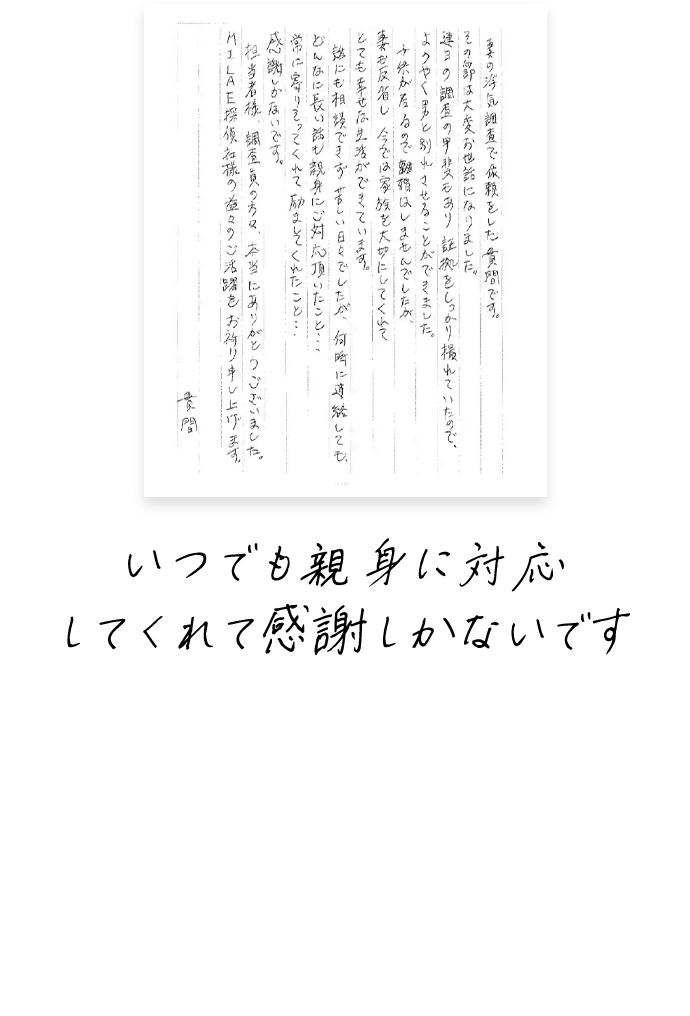 妻の浮気調査で依頼をした貴間です。
その節は大変お世話になりました。
連日の調査の甲斐もあり証拠をしっかり撮れていたので、
ようやく男と別れさせることができました。
子供が居るので離婚はしませんでしたが、
妻も反省し今では家族を大切にしてくれて
とても幸せな生活ができています。
誰にも相談できず苦しい日々でしたが、何時に連絡しても、
どんなに長い話も親身にご対応頂いたこと…
常に寄りそってくれて励ましてくれたこと…
感謝しかないです。
担当者様、調査員の方々、本当にありがとうございました。
MILAE探偵社様の益々のご活躍をお祈り申し上げます。
貴間
いつでも親身に対応
してくれて感謝しかないです